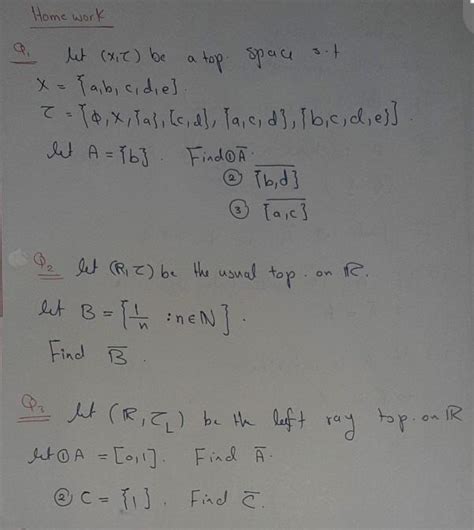 Home work
Q1 let (X,τ) be a top. space s.t
X = {a,b,c,d,e}.
τ = {ϕ, X, {a}, {c,d}, {a,c,d}, {b,c,d,e}}.
let A = {b}. Find ① A̅.
② \overline{{b,d}}
③ \overline{{a,c}}
Q2 let (R,τ) be the usual top. on ℝ.
let B = {1/n : n∈N}.
Find B̅.
Q3 let (R,τ_L) be the left ray top. on ℝ
let ① A = [0,1]. Find A̅.
② C = {1}. Find C̅.